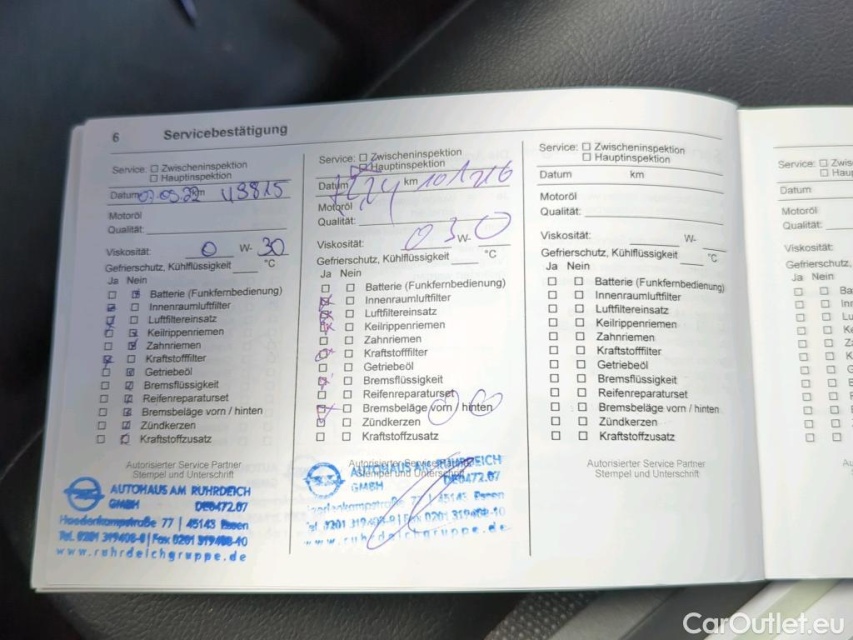 6 Servicebestätigung
Service: Zwischeninspektion
Hauptinspektion
Datum 07.03.22 km 43815
Motoröl
Qualität:
Viskosität: 0 W- 30
Gefrierschutz, Kühlflüssigkeit °C
Ja Nein
Batterie (Funkfernbedienung)
Innenraumluftfilter
Luftfiltereinsatz
Keilrippenriemen
Zahnriemen
Kraftstofffilter
Getriebeöl
Bremsflüssigkeit
Reifenreparaturset
Bremsbeläge vorn / hinten
Zündkerzen
Kraftstoffzusatz
Autorisierter Service Partner
Stempel und Unterschrift
AUTOHAUS AM RUHRDEICH
GMBH DE0472.07
Haedenkampstraße 77 | 45143 Essen
Tel. 0201 319408-0 | Fax 0201 319408-40
www.ruhrdeichgruppe.de
Service: Zwischeninspektion
Hauptinspektion
Datum km 101216
Motoröl
Qualität:
Viskosität: 0 W- 30
Gefrierschutz, Kühlflüssigkeit °C
Ja Nein
Batterie (Funkfernbedienung)
Innenraumluftfilter
Luftfiltereinsatz
Keilrippenriemen
Zahnriemen
Kraftstofffilter
Getriebeöl
Bremsflüssigkeit
Reifenreparaturset
Bremsbeläge vorn / hinten
Zündkerzen
Kraftstoffzusatz
Autorisierter Service Partner
Stempel und Unterschrift
AUTOHAUS AM RUHRDEICH
GMBH DE0472.07
45143 Essen
www.ruhrdeichgruppe.de
Service: Zwischeninspektion
Hauptinspektion
Datum km
Motoröl
Qualität:
Viskosität: W-
Gefrierschutz, Kühlflüssigkeit °C
Ja Nein
Batterie (Funkfernbedienung)
Innenraumluftfilter
Luftfiltereinsatz
Keilrippenriemen
Zahnriemen
Kraftstofffilter
Getriebeöl
Bremsflüssigkeit
Reifenreparaturset
Bremsbeläge vorn / hinten
Zündkerzen
Kraftstoffzusatz
Autorisierter Service Partner
Stempel und Unterschrift
Service:
Datum
Motoröl
Qualität:
Viskosität:
Gefrierschutz,
Ja Nein
CarOutlet.eu